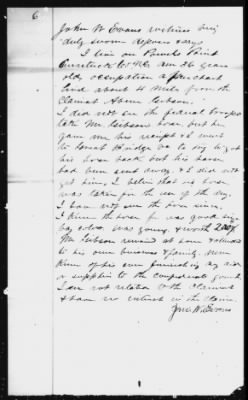 6
John W Evans witness being
duly sworn deposes & says
I live on Powels Point
Currituck Co NC am 26 years
old, occupation a merchant
live about 4 miles from the
Claimant Abner Gibson.
I did not see the federal troops
take Mr Gibsons horse but he
gave me his receipt & I went
to Great Bridge Va to try to get
his horse back but his horse
had been sent away & I did not
get him, I believe that his horse
was taken for the use of the army.
I have not seen the horse since.
I knew the horse he was good size
bay color was young & worth 200$
Mr Gibson remained at home & attended
to his own business & family. never
knew of his ever furnishing any aid
or supplies to the confederate
I am not relation to the Claimant
& have no interest in the claim.
Jno W. Evans